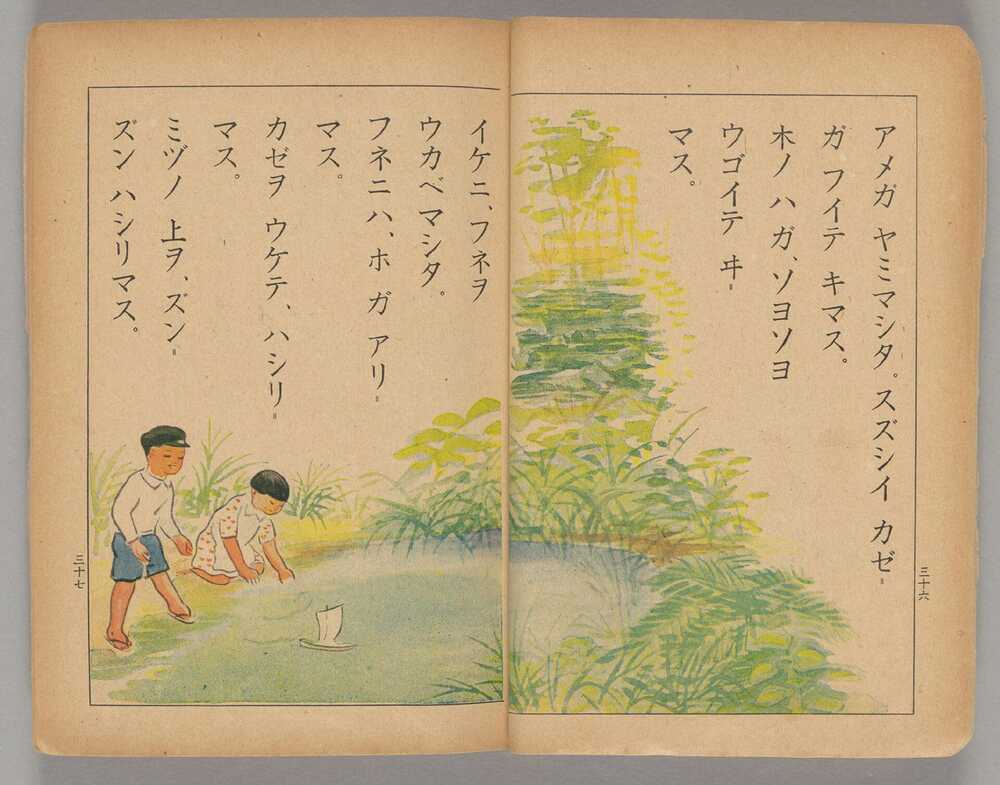 アメガ ヤミマシタ。スズシイ カゼ゠
ガ フイテ キマス。
木ノ ハガ、ソヨソヨ
ウゴイテ ヰ゠
マス。
三十六
イケニ、フネヲ
ウカベマシタ。
フネニハ、ホ ガ アリ゠
マス。
カゼヲ ウケテ、ハシリ゠
マス。
ミヅノ 上ヲ、ズン゠
ズン ハシリマス。
三十七